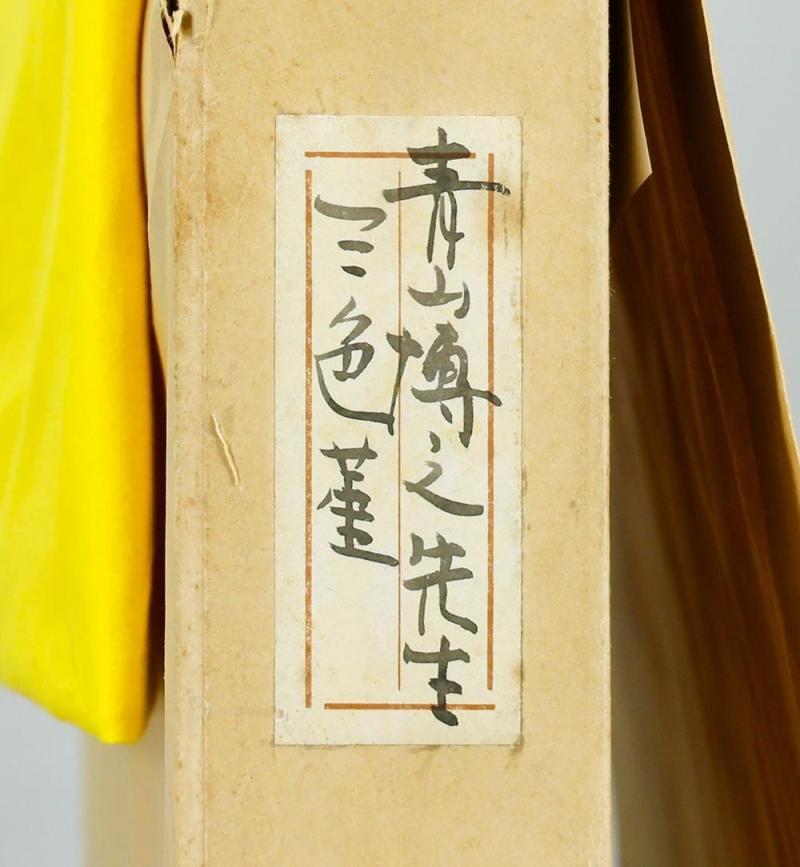 青山博之先生
三色菫